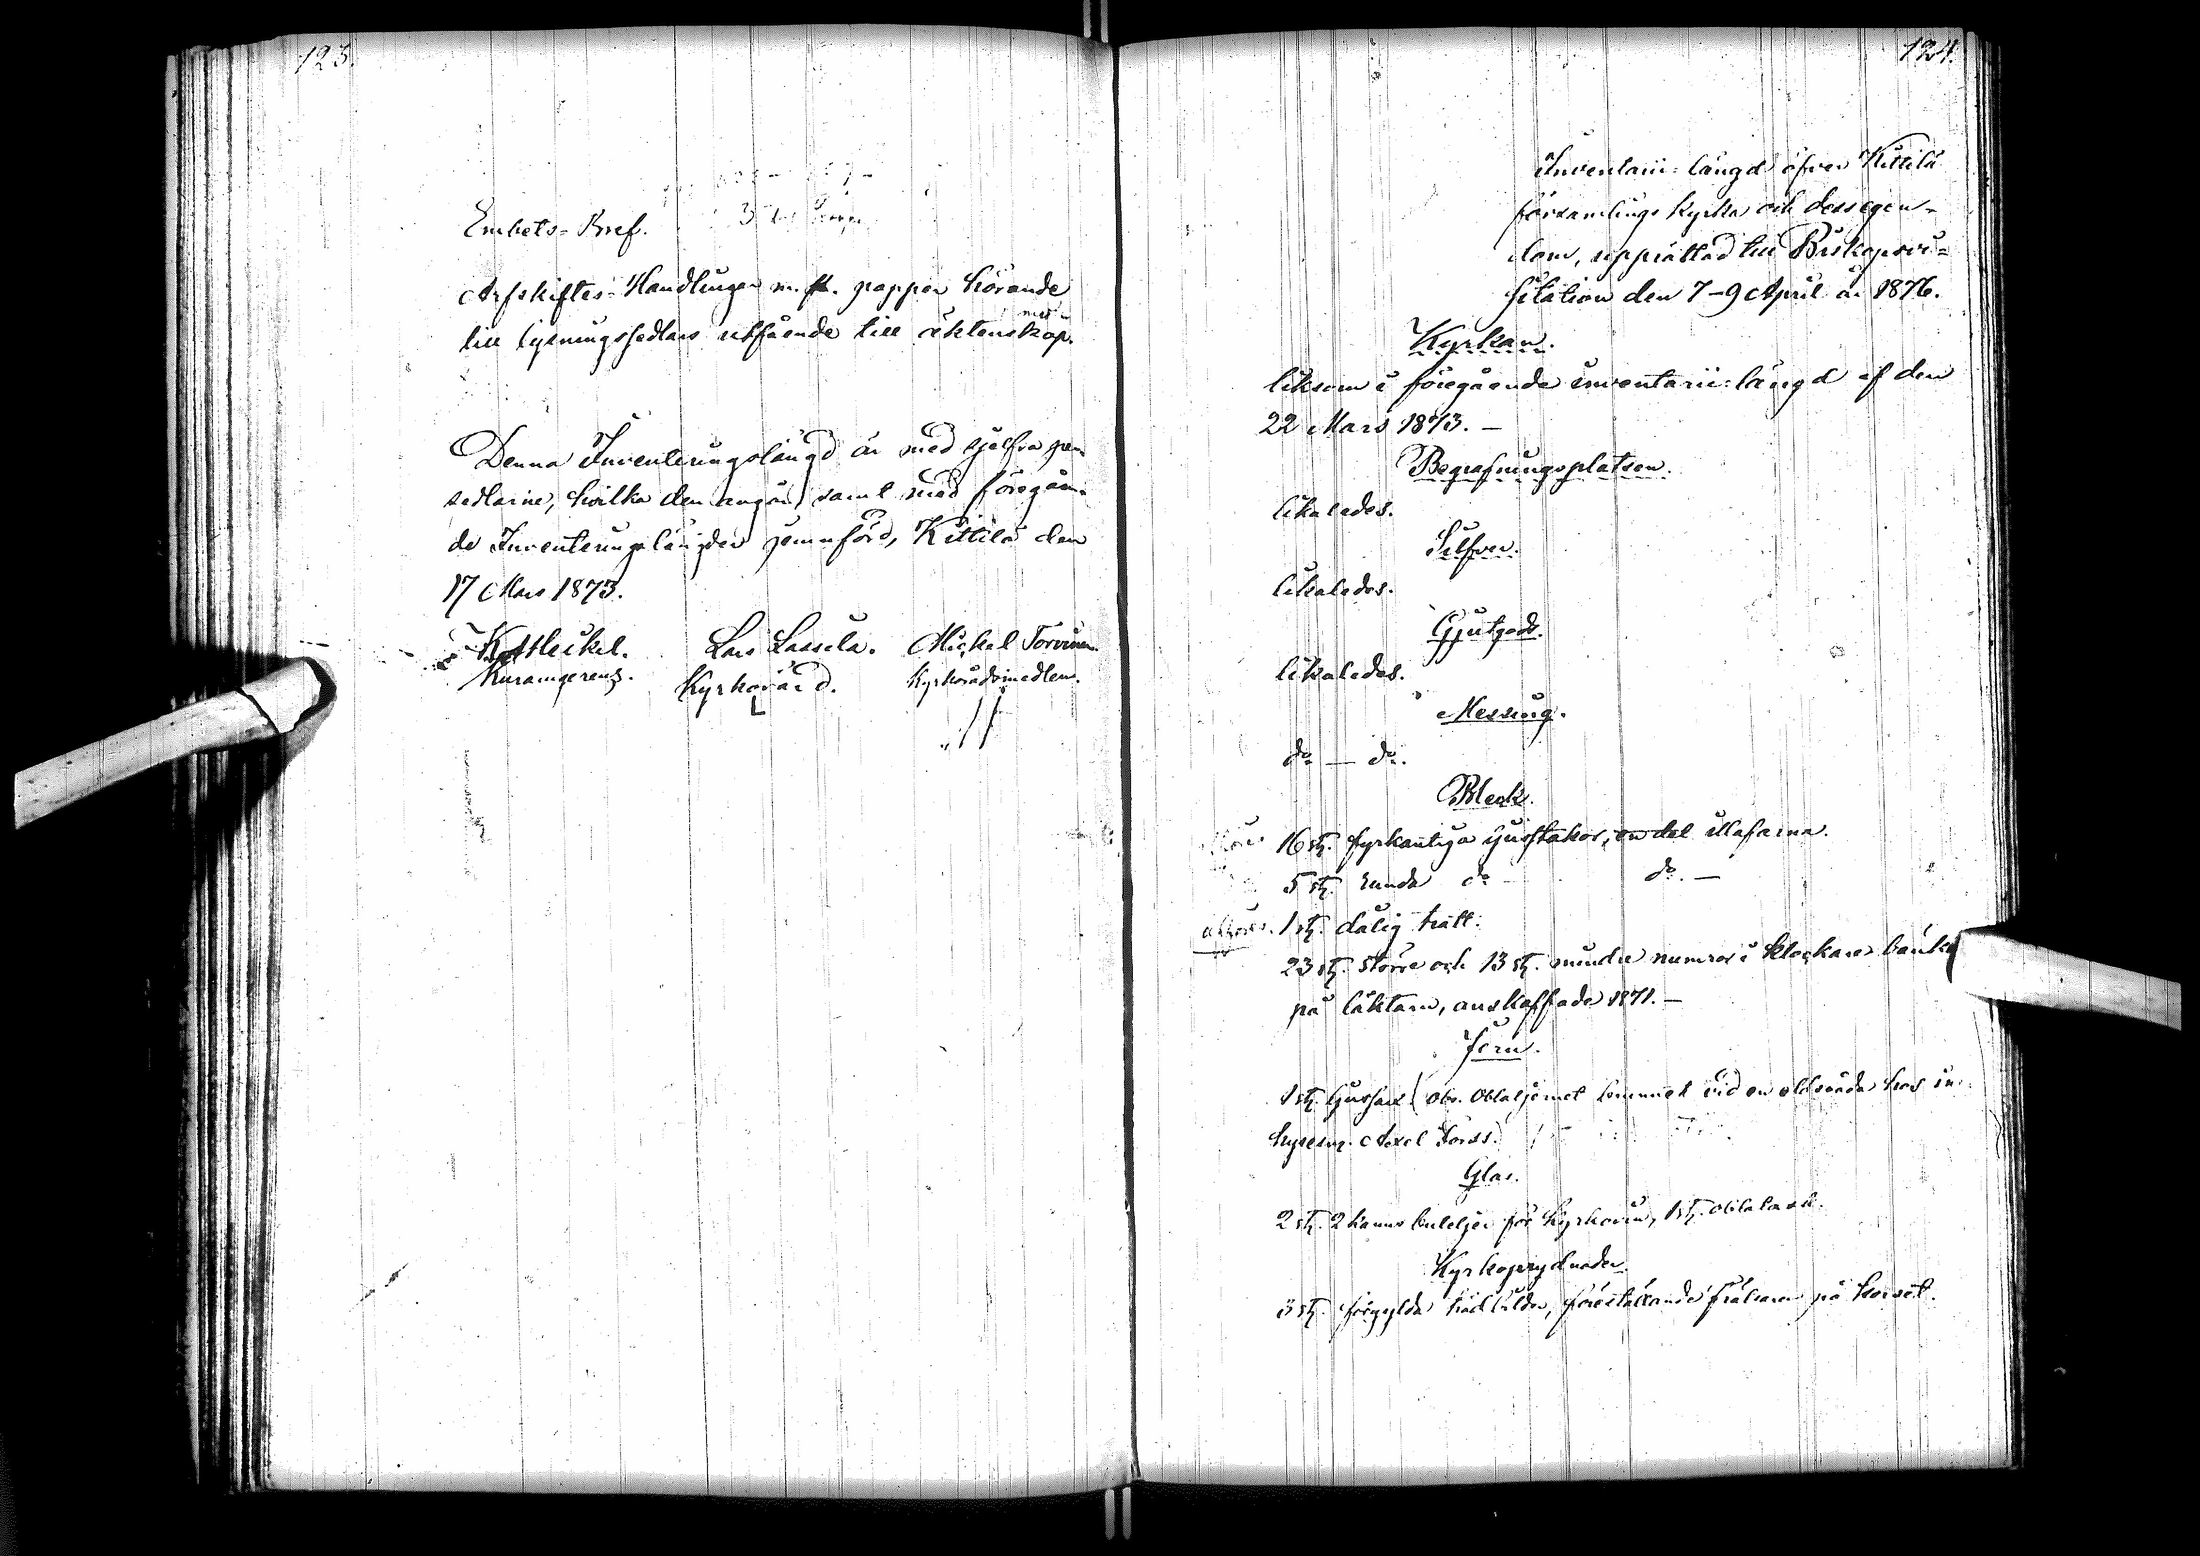 123.
Embets-Bref.
Arfskiftes-Handlingar m. fl. papper hörande
till lysningssedlars utfående till äktenskap.
Denna Inventeringslängd är med sjelfva per-
sedlarne, hvilka den angår, samt med föregåen-
de Inventeringslängder jemnförd, Kittilä den
17 Mars 1873.
K. A. Heikel. Lars Lassila. Michel Torvinen.
Kyrkovärd. Kyrkorådsmedlem.
124.
Inventarii-längd öfver Kittilä
församlings kyrka och dess egen-
dom, upprättad till Biskopsvi-
sitation den 7-9 April år 1876.
Kyrkan.
liksom i föregående inventarii-längd af den
22 Mars 1873. —
Begrafningsplatsen.
likaledes.
Silfver.
likaledes.
Gjutgods.
likaledes.
Messing.
do — do.
Bleck.
16 st. fyrkantiga ljusstakar, en del illafarna.
5 st. runda do do. —
1 st. dålig tratt.
23 st. större och 13 st. mindre numror i klockare bänken
på läktarn, anskaffade 1871. —
Jern.
1 st. ljussax (obs. Oblatjernet brunnit vid en eldsvåda hos in-
hysesm. Axel Forss.)
Glas.
2 st. 2 kanns buteljer för kyrkovin, 1 st. oblatask.
Kyrkoprydnader.
3 st. förgyllda trädbilder, föreställande frälsaren på korset.